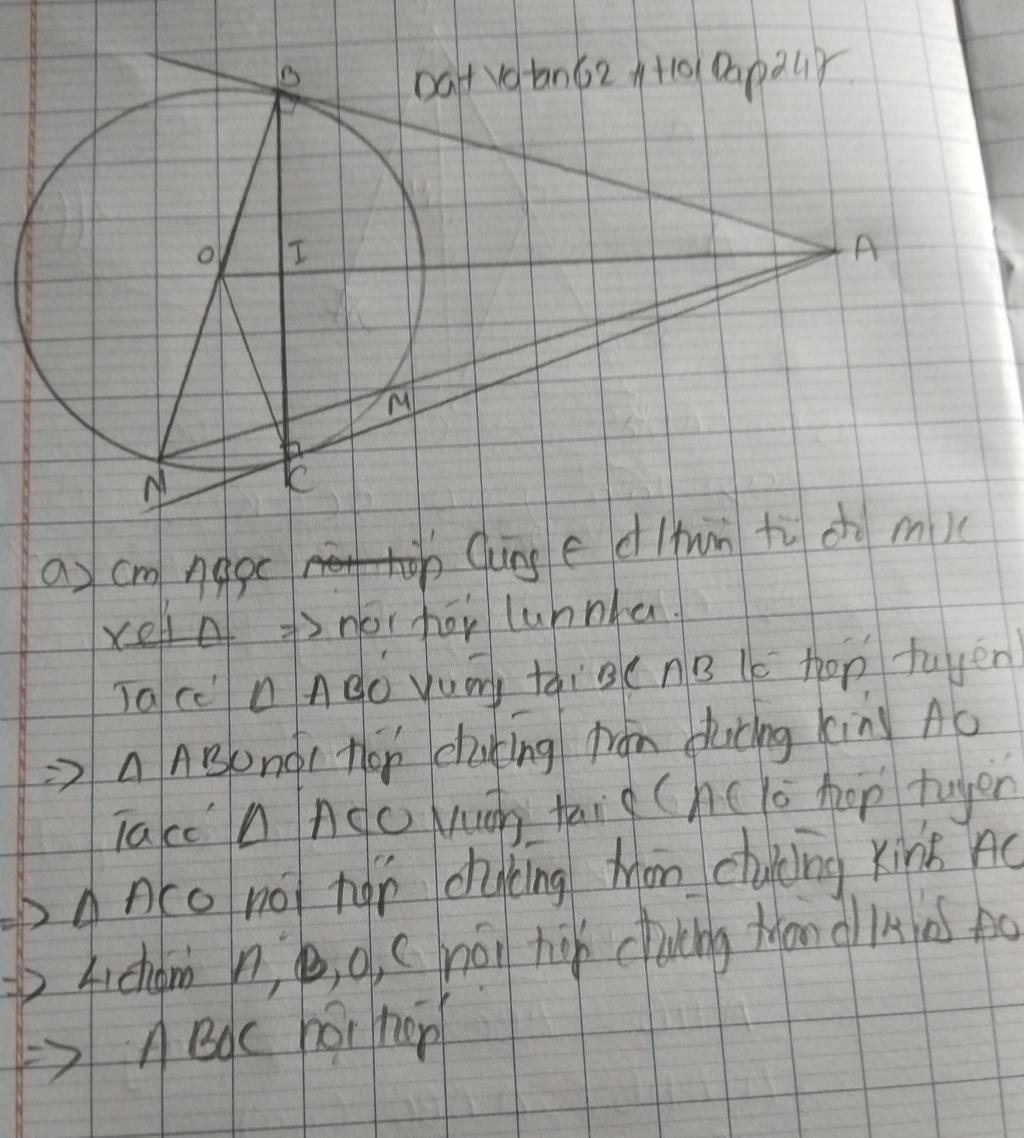 B
O
I
A
M
N
C
a) cm ABOC nội tiếp cùng € đ/tròn từ đó mik
xét Δ => nội tiếp lun nha.
Ta có Δ ABO vuông tại B( AB là tiếp tuyến)
=> Δ ABO nội tiếp đường tròn đường kính AO
Ta có Δ ACO vuông tại C( AC là tiếp tuyến
=> Δ ACO nội tiếp đường tròn đường kính AO
=> 4 điểm A, B, O, C nội tiếp đường tròn đ/kính AO
=> ABOC nội tiếp